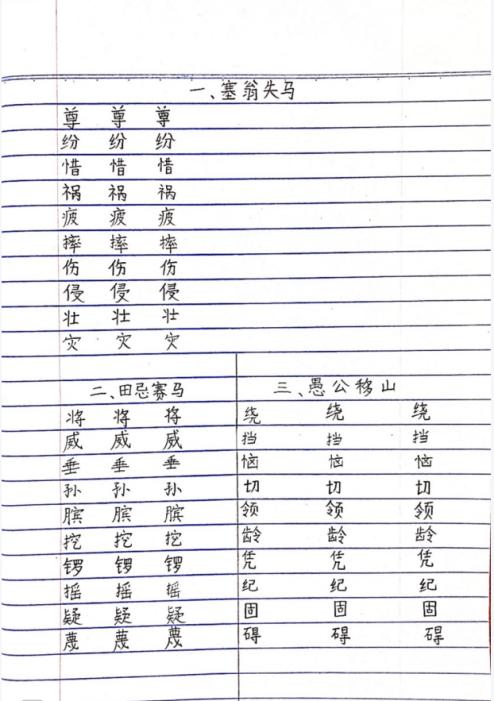 一、塞翁失马
尊 尊 尊
纷 纷 纷
惜 惜 惜
祸 祸 祸
疲 疲 疲
摔 摔 摔
伤 伤 伤
侵 侵 侵
壮 壮 壮
灾 灾 灾
二、田忌赛马
将 将 将
威 威 威
垂 垂 垂
孙 孙 孙
膑 膑 膑
挖 挖 挖
锣 锣 锣
摇 摇 摇
疑 疑 疑
蔑 蔑 蔑
三、愚公移山
绕 绕 绕
挡 挡 挡
恼 恼 恼
切 切 切
领 领 领
龄 龄 龄
凭 凭 凭
纪 纪 纪
固 固 固
碍 碍 碍